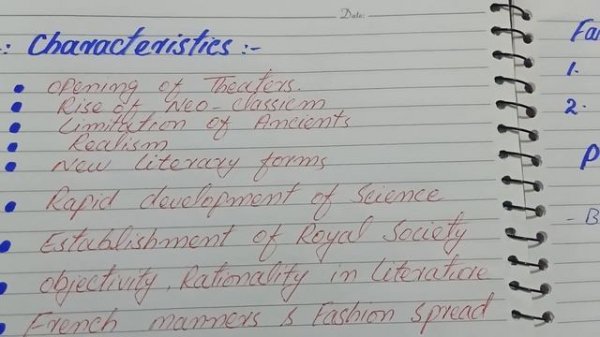 Date:
: Characteristics :-
• Opening of Theaters.
• Rise of Neo-classicm
• Limitation of Ancients
• Realism
• New literary forms
• Rapid development of Science
• Establishment of Royal Society
• Objectivity, Rationality in literature
• French manners & Fashion spread
Fa
1.
2.
P
- B